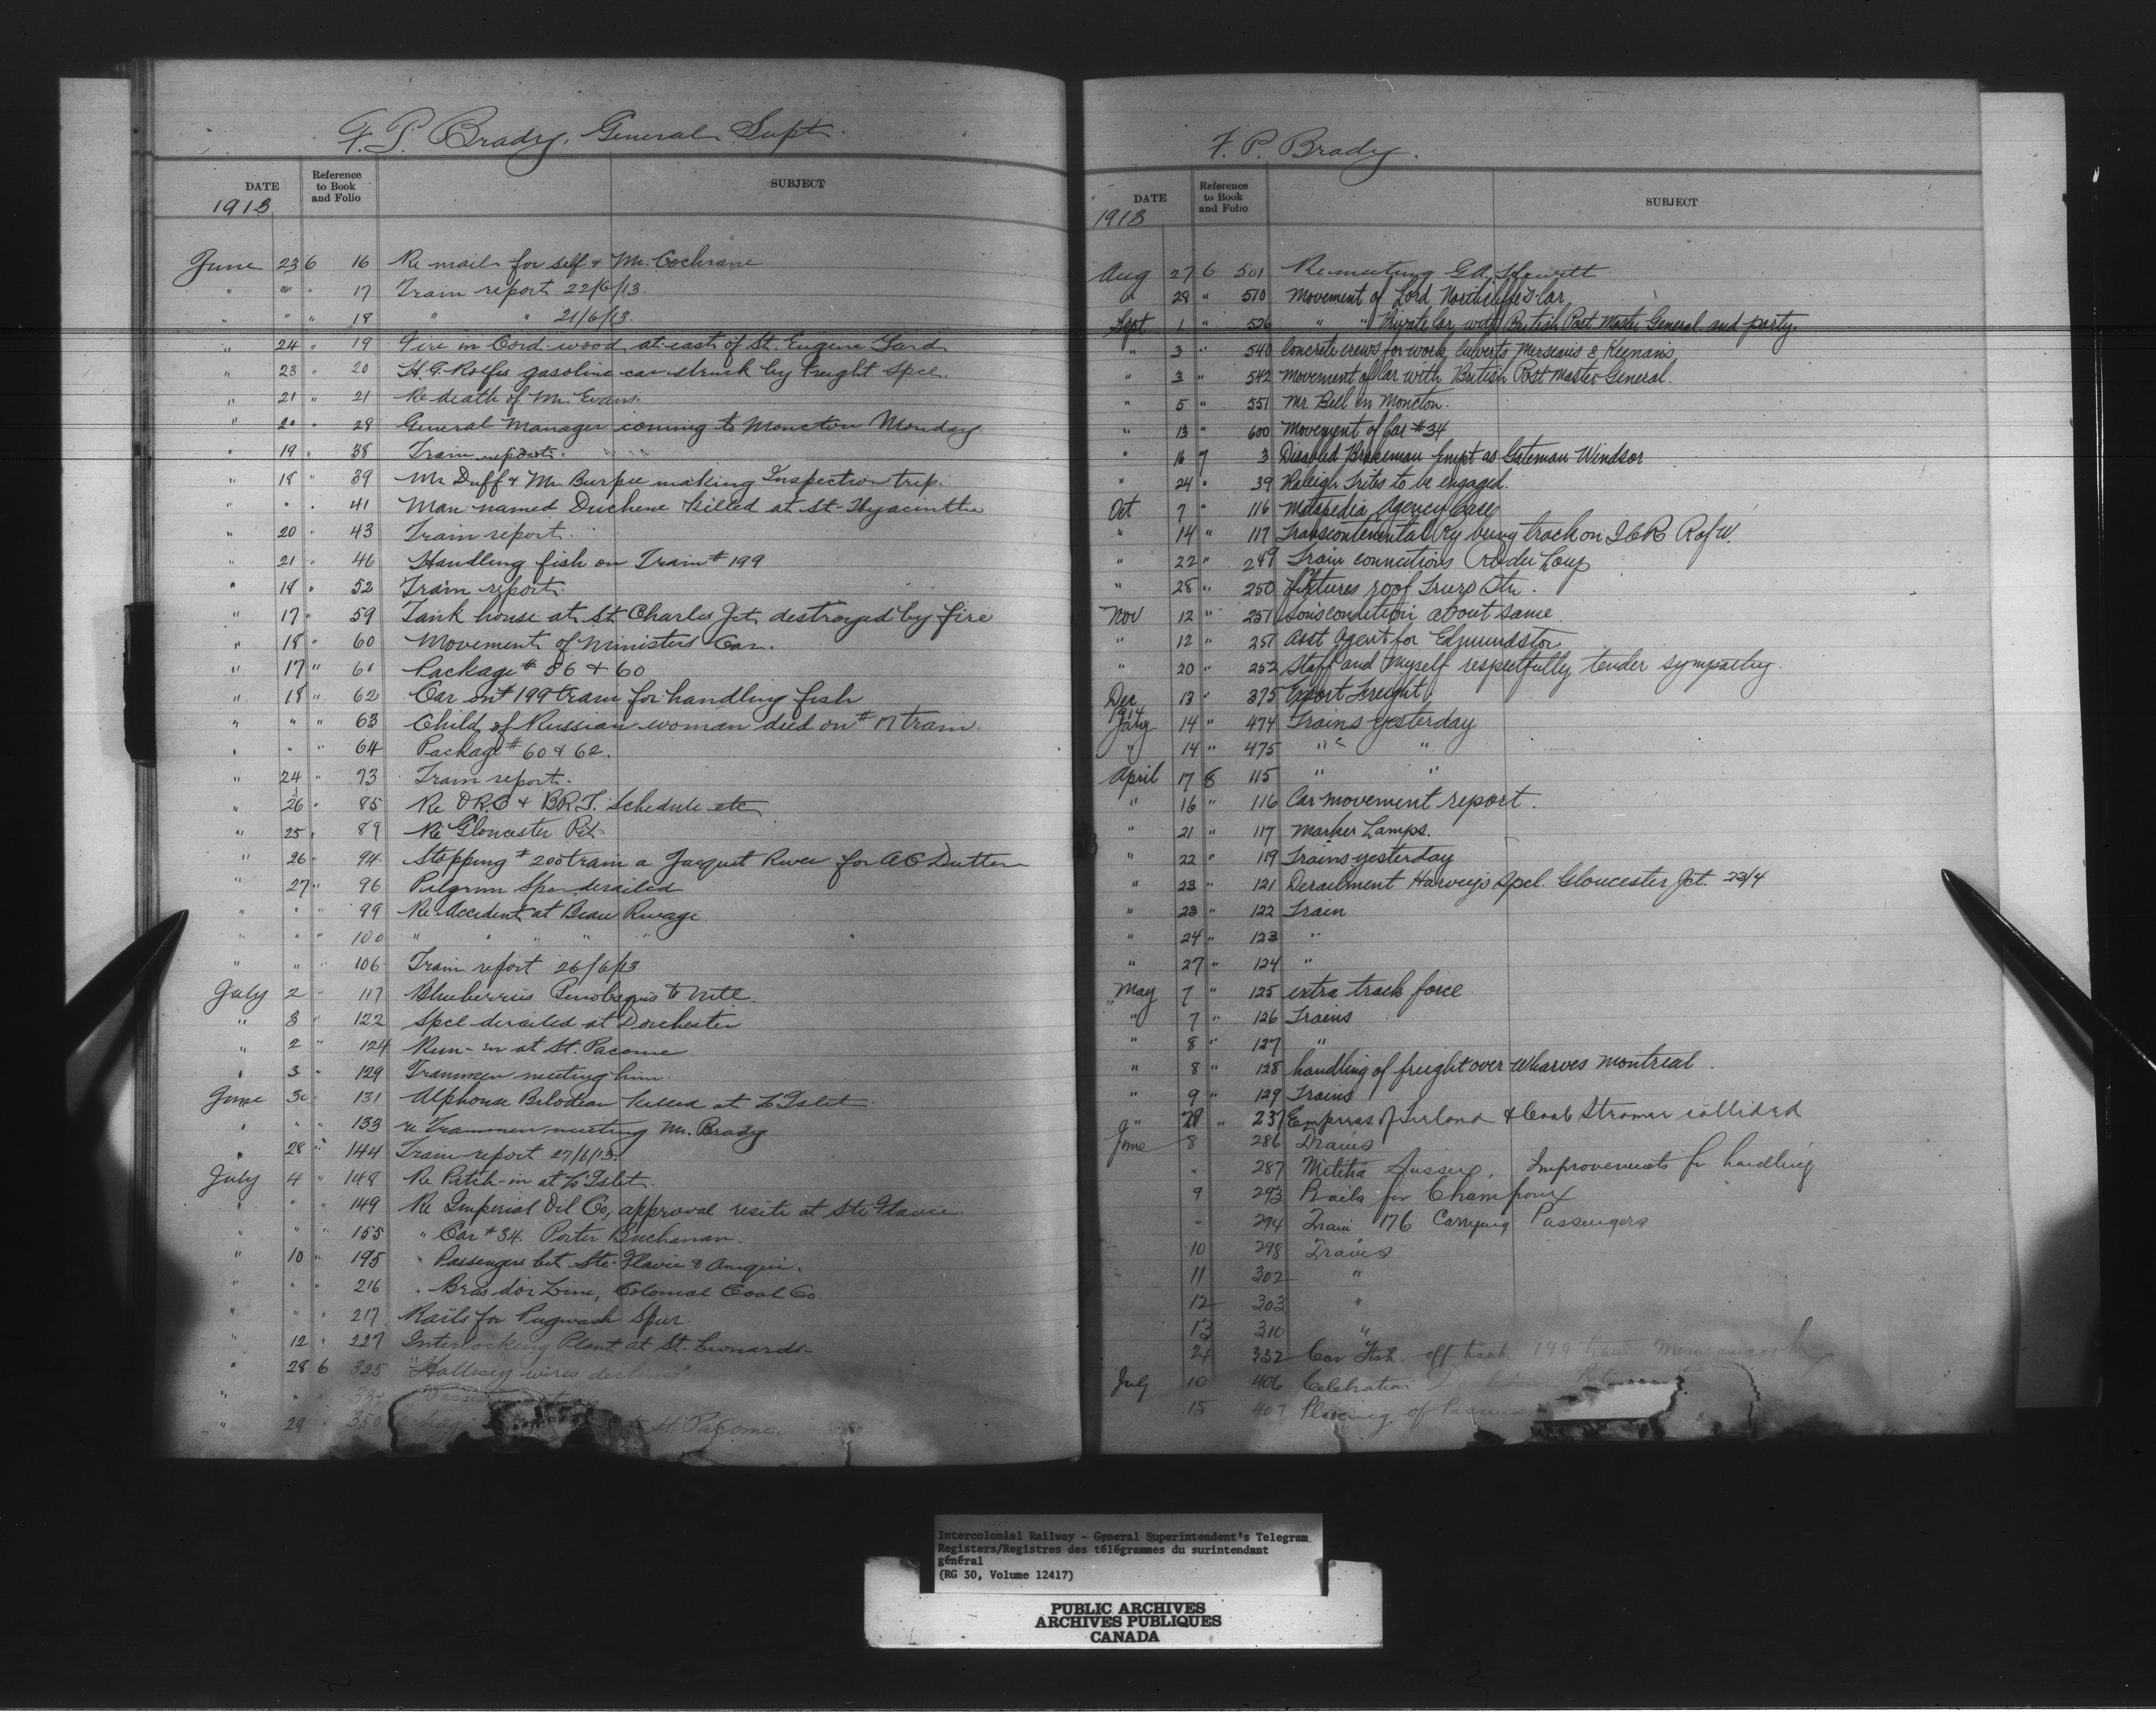 F. P. Brady, General Supt.
DATE Reference to Book and Folio SUBJECT
1913
June 23 6 16 Re mail for self & Mr. Cochrane
" " " 17 Train report 22/6/13.
" " " 18 " " 21/6/13.
" 24 " 19 Fire in Cord wood at east of St. Eugene Yard
" 23 " 20 H.G. gasoline car struck by freight Spcl.
" 21 " 21 Re death of Mr. Evans.
" 20 " 28 General Manager coming to Moncton Monday
" 19 " 38 Train report.
" 18 " 39 Mr Duff & Mr. Burpee making Inspection trip.
" " " 41 Man named Duchene killed at St-Hyacinthe
" 20 " 43 Train report.
" 21 " 46 Handling fish on Train # 199
" 18 " 52 Train report
" 17 " 59 Tank house at St Charles Jct destroyed by fire
" 18 " 60 Movement of Ministers Car.
" 17 " 61 Package # 56 & 60
" 18 " 62 Car on # 199 train for handling fish
" " " 63 Child of Russian woman died on # 17 train.
" " " 64 Package # 60 & 62.
" 24 " 73 Train report.
" 26 " 85 Re O.R.C & B.R.T. Schedule etc
" 25 " 89 Re Gloucester Pit
" 26 " 94 Stopping # 200 train a Jacquet River for AC Dutton
" 27 " 96 Pilgrim Spcl derailed
" " " 99 Re Accident at Beau Rivage.
" " " 100 " " " " "
" " " 106 Train report 26/6/13
July 2 " 117 Blueberries Penobsquis to Mtl.
" 3 " 122 Spcl derailed at Dorchester
" 2 " 124 Run-in at St. Pacome
" 3 " 129 Trainmen meeting him.
June 30 " 131 Alphonse Bilodeau killed at L'Islet
" " " 133 re Trainmen meeting Mr. Brady
" 28 " 144 Train report 27/6/13.
July 4 " 148 Re Pitch-in at L'Islet.
" " " 149 Re Imperial Oil Co, approval resite at Ste Flavie.
" " " 155 " Car # 34. Porter Buchanan.
" 10 " 195 " Passengers bet Ste-Flavie & Amqui.
" " " 216 " Bras dor Line, Colonial Coal Co.
" " " 217 Rails for Pugwash Spur.
" 12 " 227 Interlocking Plant at St. Leonards
" 28 6 325 "Hallisey wires declines"
" 29 350 St. Pacome.
F. P. Brady.
DATE Reference to Book and Folio SUBJECT
1913
Aug 27 6 501 Re meeting G.A. Hewitt
" 28 " 510 Movement of Lord Northcliffe's Car
Sept 1 " 526 " " Private Car with British Post Master General and party.
" 3 " 540 Concrete crews for work culverts & Keenans
" 3 " 542 Movement of Car with British Post Master General.
" 5 " 551 Mr. Bell in Moncton.
" 13 " 600 Movement of Car # 34
" 16 7 3 Disabled Brakeman Empt as Gateman Windsor
" 24 " 39 Raleigh Trites to be engaged.
Oct 7 " 116 Matapedia Agency Case
" 14 " 117 Transcontinental Ry using track on I.C.R. R of W.
" 22 " 249 Train connections R du Loup
" 28 " 250 Fixtures roof Truro Stn.
Nov 12 " 251 Son's condition about same
" 12 " 251 Asst Agent for Edmundston
" 20 " 252 Staff and Myself respectfully tender sympathy.
Dec 13 " 375 Export Freight.
1914
Jany 14 " 474 Trains yesterday
" 14 " 475 " "
April 17 8 115 " "
" 16 " 116 Car movement report.
" 21 " 117 Marker Lamps.
" 22 " 119 Trains yesterday
" 23 " 121 Derailment Harvey's Spcl. Gloucester Jct. 23/4
" 23 " 122 Train
" 24 " 123 "
" 27 " 124 "
May 7 " 125 extra track force
" 7 " 126 Trains
" 8 " 127 "
" 8 " 128 handling of freight over Wharves Montreal.
" 9 " 129 Trains
" 29 " 237 Empress of Ireland & Coal Steamer collided
June 8 286 Trains
" 287 Militia Sussex. Improvements for handling
9 293 Rails for Champoux
" 294 Train 176 Carrying Passengers
10 298 Trains
11 302 "
12 303 "
13 310 "
24 332 Car Fish. off track 199 train
July 10 406 Celebration
15 407 Placing of
Intercolonial Railway - General Superintendent's Telegram
Registers/Registres des télégrammes du surintendant
général
(RG 30, Volume 12417)
PUBLIC ARCHIVES
ARCHIVES PUBLIQUES
CANADA